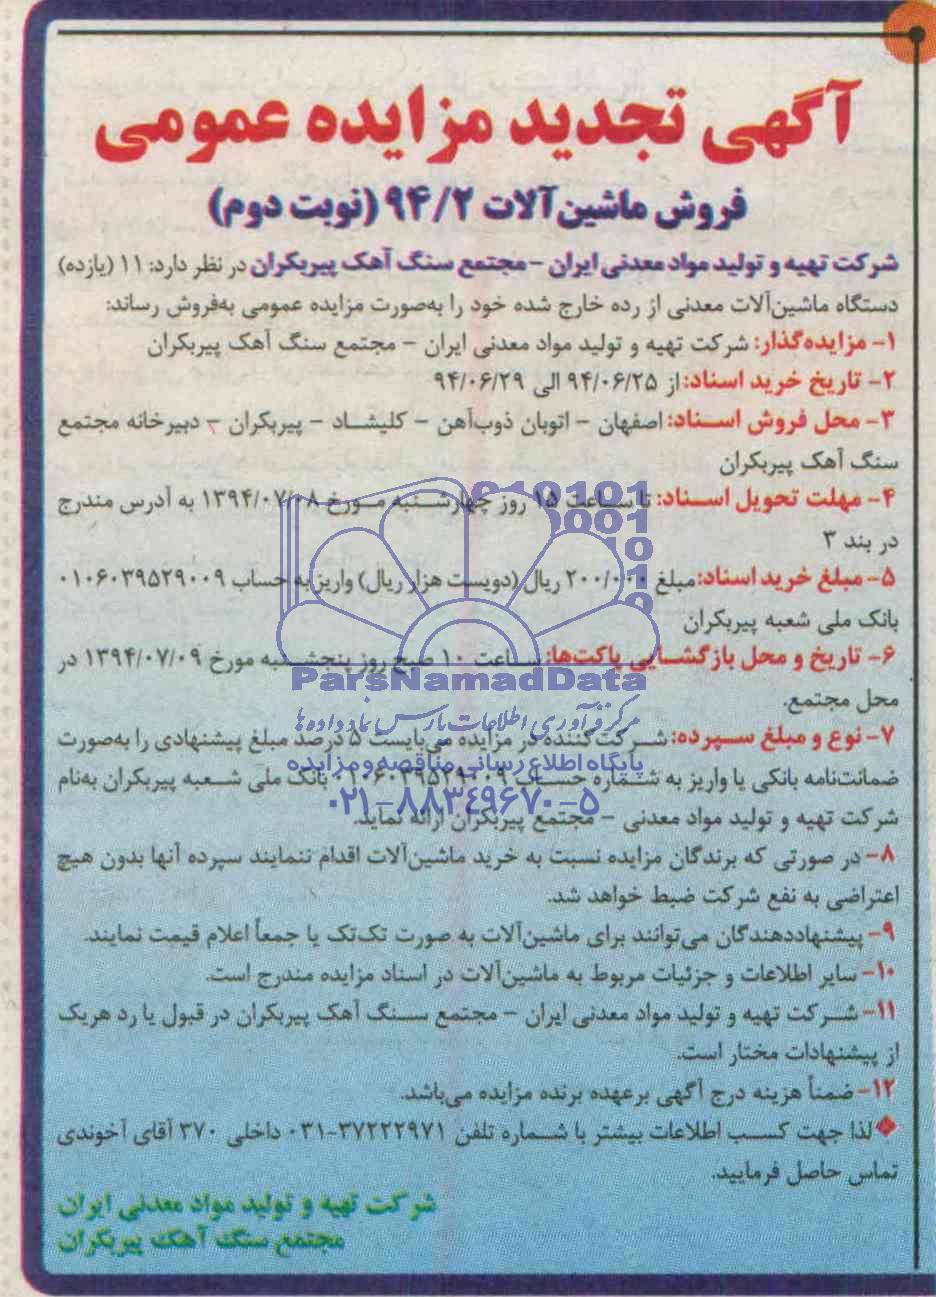 آگهی تجدید مزایده عمومی
فروش ماشین‌آلات ۹۴/۲ (نوبت دوم)
شرکت تهیه و تولید مواد معدنی ایران - مجتمع سنگ آهک پیربکران در نظر دارد: ۱۱ (یازده)
دستگاه ماشین‌آلات معدنی از رده خارج شده خود را به‌صورت مزایده عمومی به‌فروش رساند:
۱- مزایده‌گذار: شرکت تهیه و تولید مواد معدنی ایران - مجتمع سنگ آهک پیربکران
۲- تاریخ خرید اسناد: از ۹۴/۰۶/۲۵ الی ۹۴/۰۶/۲۹
۳- محل فروش اسناد: اصفهان - اتوبان ذوب‌آهن - کلیشاد - پیربکران - دبیرخانه مجتمع
سنگ آهک پیربکران
۴- مهلت تحویل اسناد: تا ساعت ۱۵ روز چهارشنبه مورخ ۱۳۹۴/۰۷/۰۸ به آدرس مندرج
در بند ۳
۵- مبلغ خرید اسناد: مبلغ ۲۰۰/۰۰۰ ریال (دویست هزار ریال) واریز به حساب ۰۱۰۶۰۳۹۵۲۹۰۰۹
بانک ملی شعبه پیربکران
۶- تاریخ و محل بازگشایی پاکت‌ها: ساعت ۱۰ صبح روز پنجشنبه مورخ ۱۳۹۴/۰۷/۰۹ در
محل مجتمع.
ParsNamadData
مرکز فرآوری اطلاعات پارس نماد داده‌ها
۷- نوع و مبلغ سپرده: شرکت‌کننده در مزایده می‌بایست ۵ درصد مبلغ پیشنهادی را به‌صورت
پایگاه اطلاع رسانی مناقصه و مزایده
ضمانت‌نامه بانکی یا واریز به شماره حساب ۰۱۰۶۰۳۹۵۲۹۰۰۹ بانک ملی شعبه پیربکران به‌نام
۰۲۱-۸۸۳۴۹۶۷۰-۵
شرکت تهیه و تولید مواد معدنی - مجتمع پیربکران ارائه نماید.
۸- در صورتی که برندگان مزایده نسبت به خرید ماشین‌آلات اقدام ننمایند سپرده آنها بدون هیچ
اعتراضی به نفع شرکت ضبط خواهد شد.
۹- پیشنهاددهندگان می‌توانند برای ماشین‌آلات به صورت تک‌تک یا جمعاً اعلام قیمت نمایند.
۱۰- سایر اطلاعات و جزئیات مربوط به ماشین‌آلات در اسناد مزایده مندرج است.
۱۱- شرکت تهیه و تولید مواد معدنی ایران - مجتمع سنگ آهک پیربکران در قبول یا رد هریک
از پیشنهادات مختار است.
۱۲- ضمناً هزینه درج آگهی برعهده برنده مزایده می‌باشد.
◆ لذا جهت کسب اطلاعات بیشتر با شماره تلفن ۳۷۲۲۲۹۷۱-۰۳۱ داخلی ۳۷۰ آقای آخوندی
تماس حاصل فرمایید.
شرکت تهیه و تولید مواد معدنی ایران
مجتمع سنگ آهک پیربکران